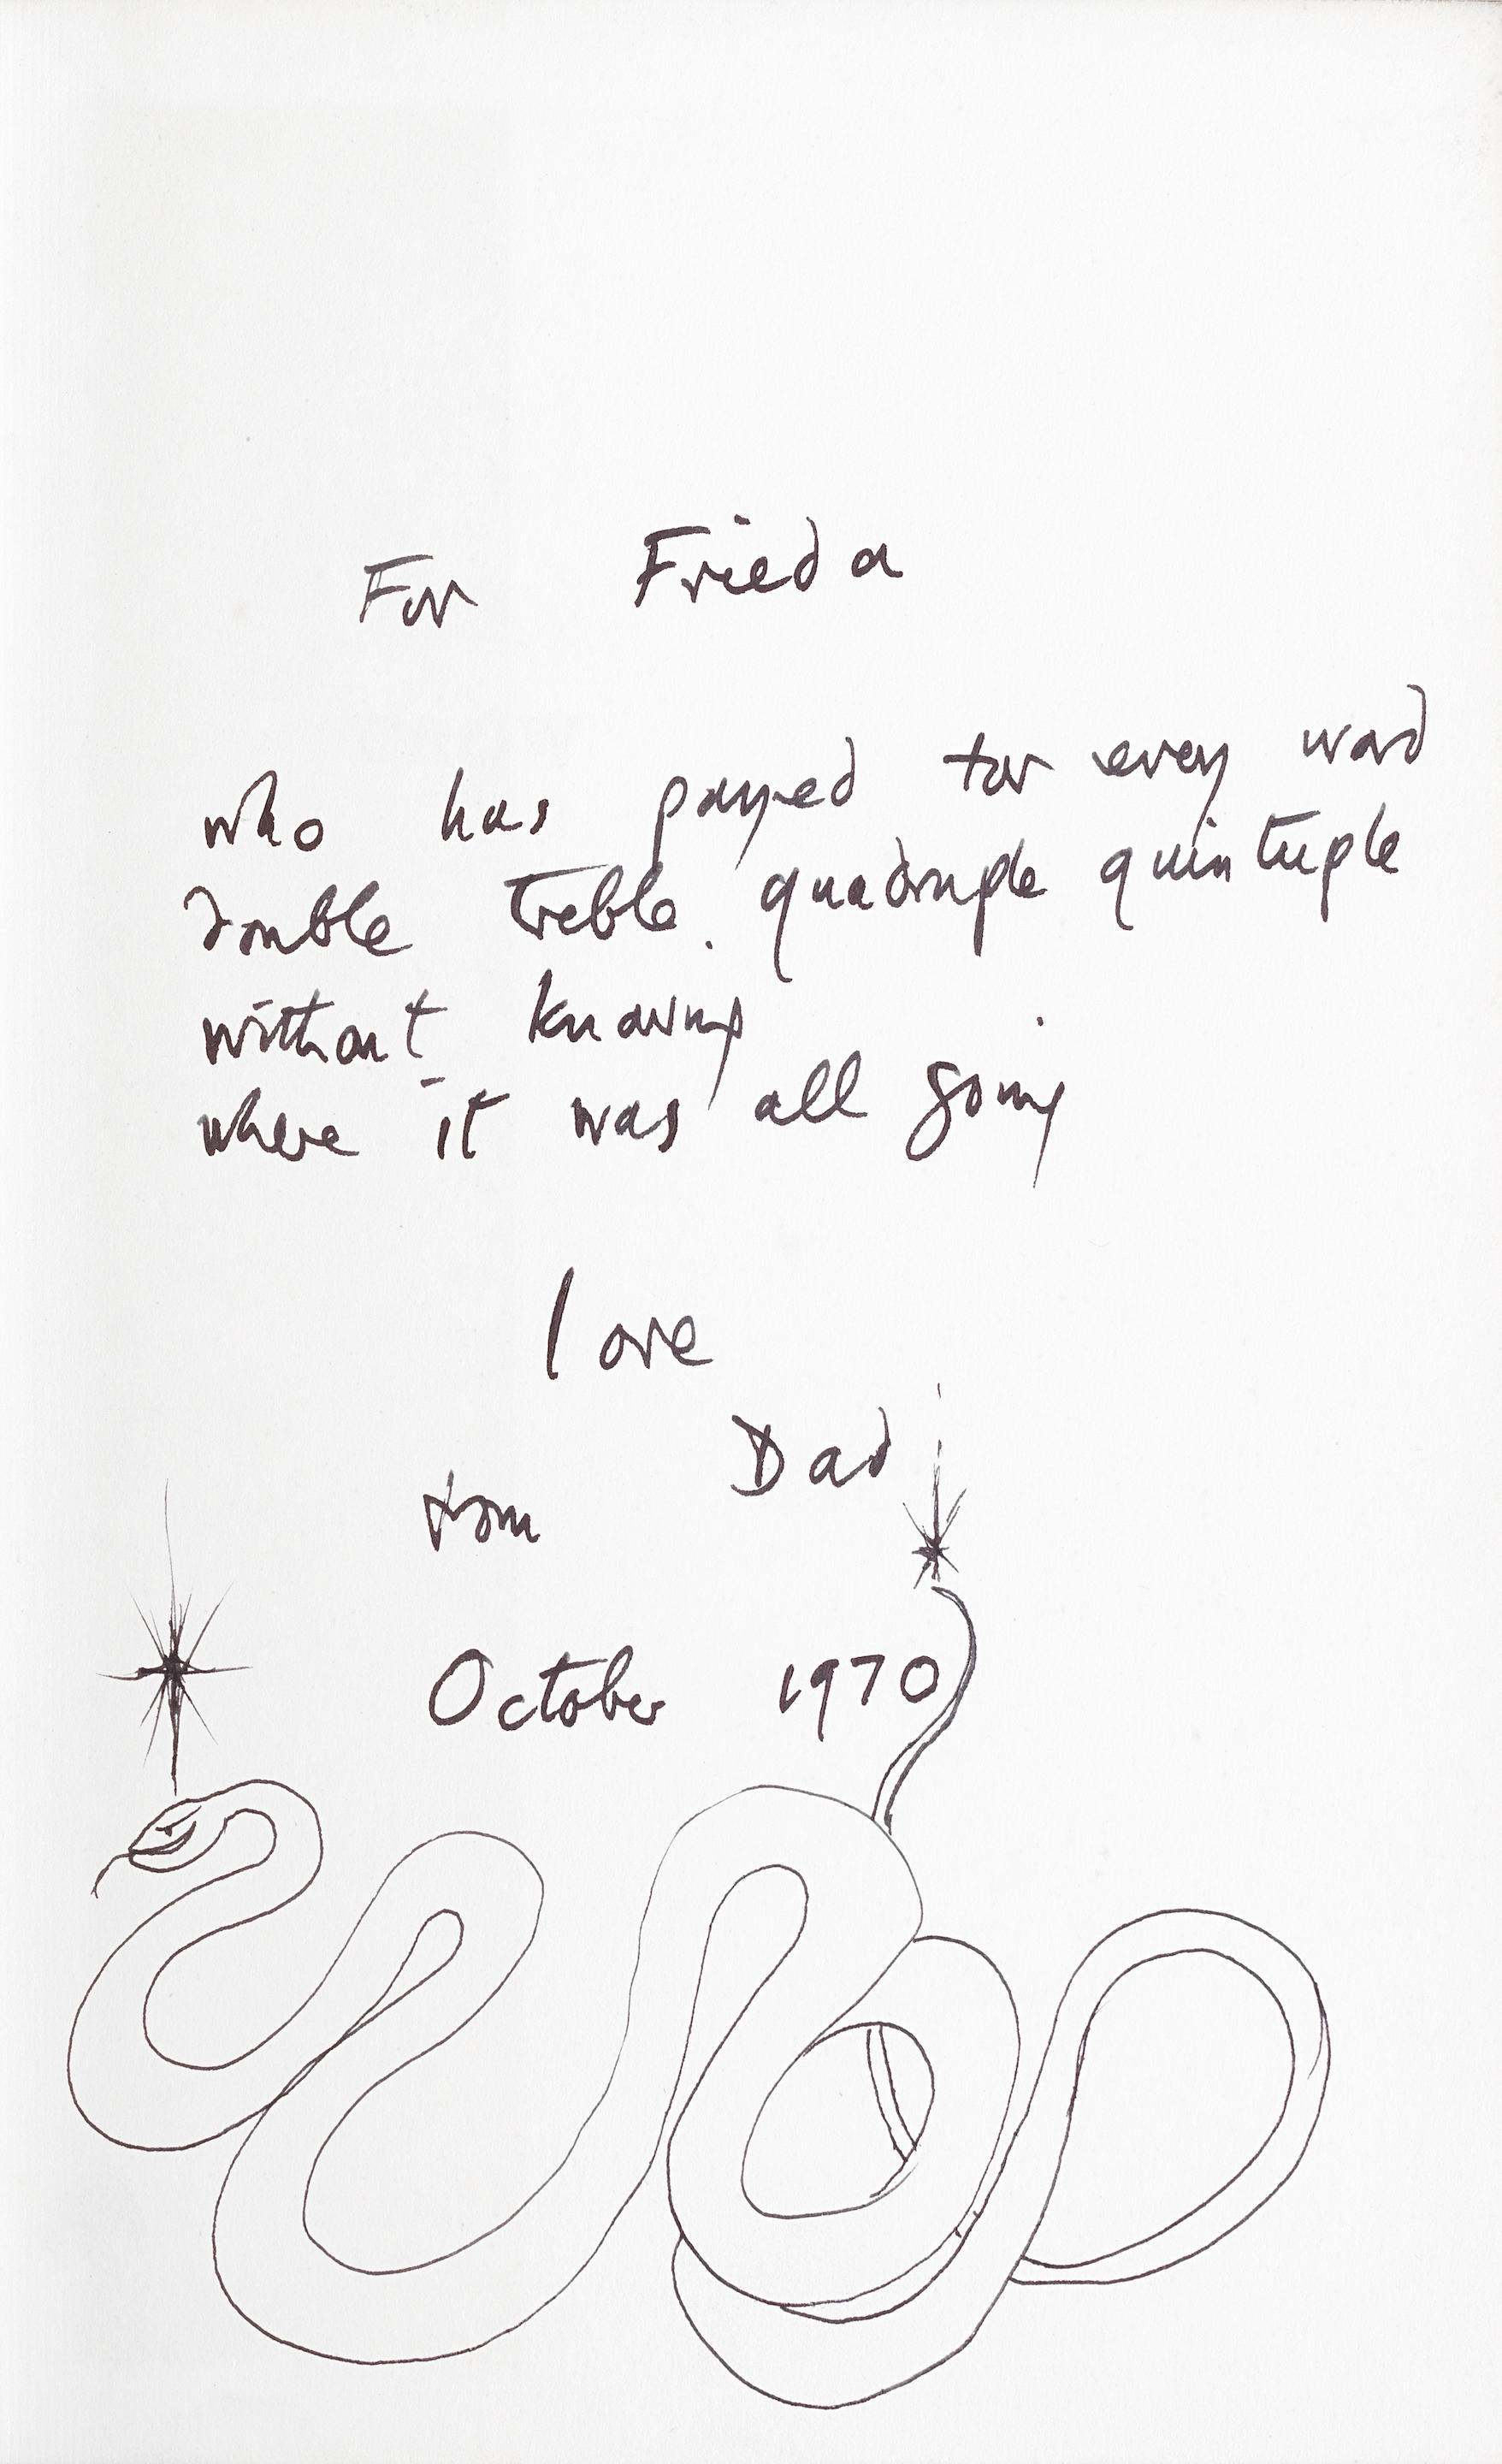 For Frieda
who has payed for every word
double treble quadruple quintuple
without knowing
where it was all going
love
Dad
from
October 1970